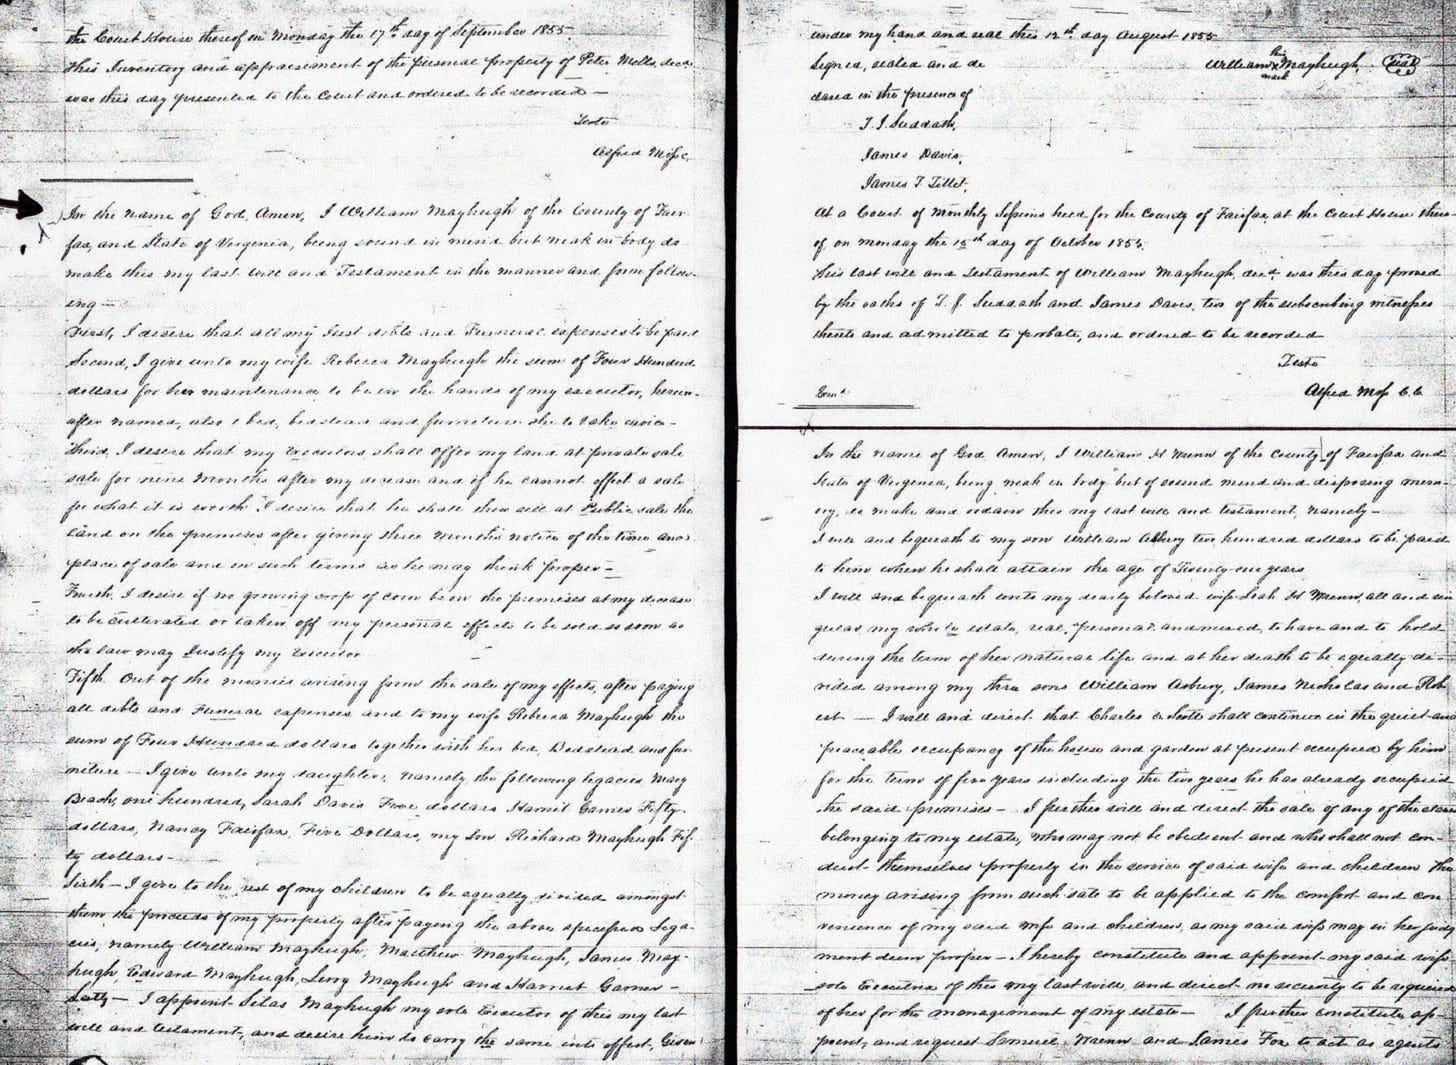 the Court House thereof on Monday the 17th day of September 1855
This Inventory and appraisement of the personal property of Peter Mills, decd
was this day presented to the Court and ordered to be recorded —
Teste
Alfred Moss C.
In the name of God, Amen, I William Mayhugh of the County of Fair-
fax, and State of Vergenia, being sound in mind but weak in body do
make this my last will and Testament in the manner and form follow-
ing —
First, I desire that all my Just debts and Funeral expenses to be paid
Second, I give unto my wife Rebecca Mayhugh the sum of Four Hundred
dollars for her maintenance to be in the hands of my executor, herein-
after named, also 1 bed, bedstead and furniture she to take choice -
Third, I desire that my Executor shall offer my land at private sale
sale for nine Months after my decease and if he cannot effect a sale
for what it is worth I desire that he shall then sell at Public sale the
Land on the premises after giving three Months notice of the time and
place of sale and on such terms as he may think proper -
Fourth, I desire if no growing crop of corn be on the premises at my decease
to be cultivated or taken off my personal effects to be sold as soon as
the law may Justify my Executor
Fifth. Out of the monies arising from the sale of my effects, after paying
all debts and Funeral expenses and to my wife Rebecca Mayhugh the
sum of Four Hundred dollars together with her bed, Bedstead and fur-
niture — I give unto my daughters, namely the following legacies Mary
Beach, one hundred, Sarah Davis Five dollars Harriet Garner Fifty
dollars, Nancy Fairfax, Five Dollars, my son Richard Mayhugh Fif-
ty dollars -
Sixth — I give to the rest of my children to be equally divided amongst
them the proceeds of my property after paying the above specified Lega-
cies, namely William Mayhugh, Matthew Mayhugh, James May-
hugh, Edward Mayhugh, Levy Mayhugh and Harriet Garner -
Lastly — I appoint Silas Mayhugh my sole Executor of this my last
will and testament, and desire him to carry the same into effect, Given
under my hand and seal this 12th day August 1855
Signed, sealed and de
his
William x Mayhugh (Seal)
mark
clared in the presence of
T. J. Suddath,
James Davis,
James T. Tillet,
At a Court of Monthly Sessions held for the County of Fairfax, at the Court House there
of on Monday the 15th day of October 1855.
This last will and Testament of William Mayhugh, decd. was this day proved
by the oaths of T. J. Suddath and James Davis, two of the subscribing witnesses
thereto and admitted to probate, and ordered to be recorded
Teste
Alfred Moss C.C.
Exmd
In the name of God Amen, I William H Wrenn of the County of Fairfax and
State of Vergenia, being weak in body but of sound mind and disposing mem-
ory, do make and ordain this my last will and testament, namely —
I will and bequeath to my son William Asbury two hundred dollars to be paid
to him when he shall attain the age of Twenty-one years
I will and bequeath unto my dearly beloved wife Leah H Wrenn, all and sin
gular my whole estate, real, personal and mixed, to have and to hold
during the term of her natural life and at her death to be equally di-
vided among my three sons William Asbury, James Nicholas and Rob
ert — I will and direct that Charles Scott shall continue in the quiet and
peaceable occupancy of the house and garden at present occupied by him
for the term of five years including the two years he has already occupied
the said premises — I further will and direct the sale of any of the slaves
belonging to my estate, who may not be obedient and who shall not con-
duct themselves properly in the service of said wife and children the
money arising from such sale to be applied to the comfort and con
venience of my said wife and children, as my said wife may in her judg
ment deem proper — I hereby constitute and appoint my said wife
sole Executrix of this my last will, and direct no security to be required
of her for the management of my estate — I further constitute ap-
point, and request Samuel Wrenn and James Fox to act as agents